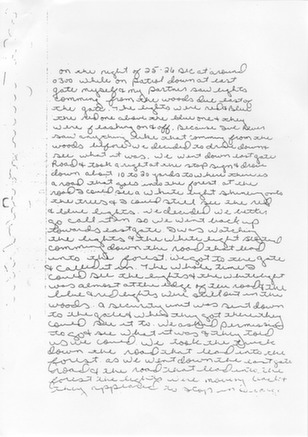 on the night of 25-26 Dec at around
0300 while on patrol down at east
gate myself & my partner saw lights
comming from the woods due east of
the gate. The lights were red & blue
the red one above the blue one & they
were flashing on & off. Because I've never
saw anything like that comming from the woods
before we decided to drive down &
see what it was. We went down east gate
road & took a right at the stop sign & drove
down about 10 to 20 yards to where there is
a road that goes into the forest at the
road I could see a white light shining onto
the trees & I could still see the red
& blue lights. We decided we better
go call it in so we went back up
towards east gate. I was watching
the lights & the white light started
comming down the road that lead
into the forest. We got to the gate
& called it in. The whole time I
could see the lights & the white light
was almost at the edge of the road & the
blue & red lights were still out in the
woods. A security unit was sent down
to the gate & when they got there they
could see it to. We asked permission
to go & see what it was & they told
us we could. We took the truck
down the road that lead into the
forest. As we went down the east gate
road & the road that lead into the
forest the lights were moving back &
they appeared to stop